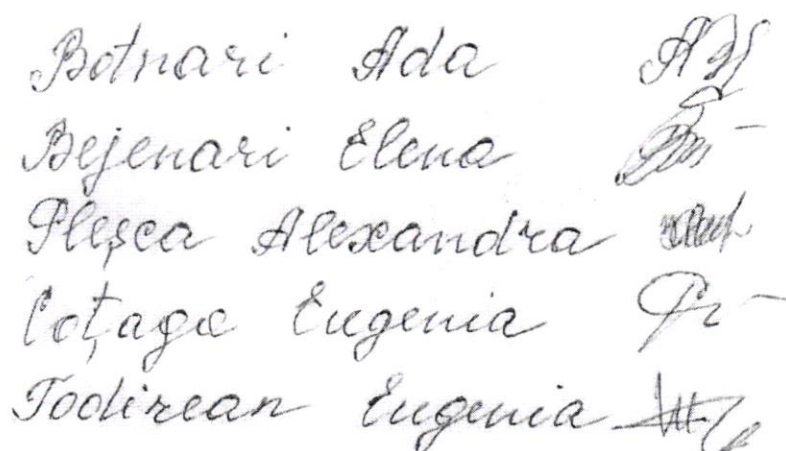 Botnari Ada
Bejenari Elena
Pleșca Alexandra
Coțaga Eugenia
Todirean Eugenia